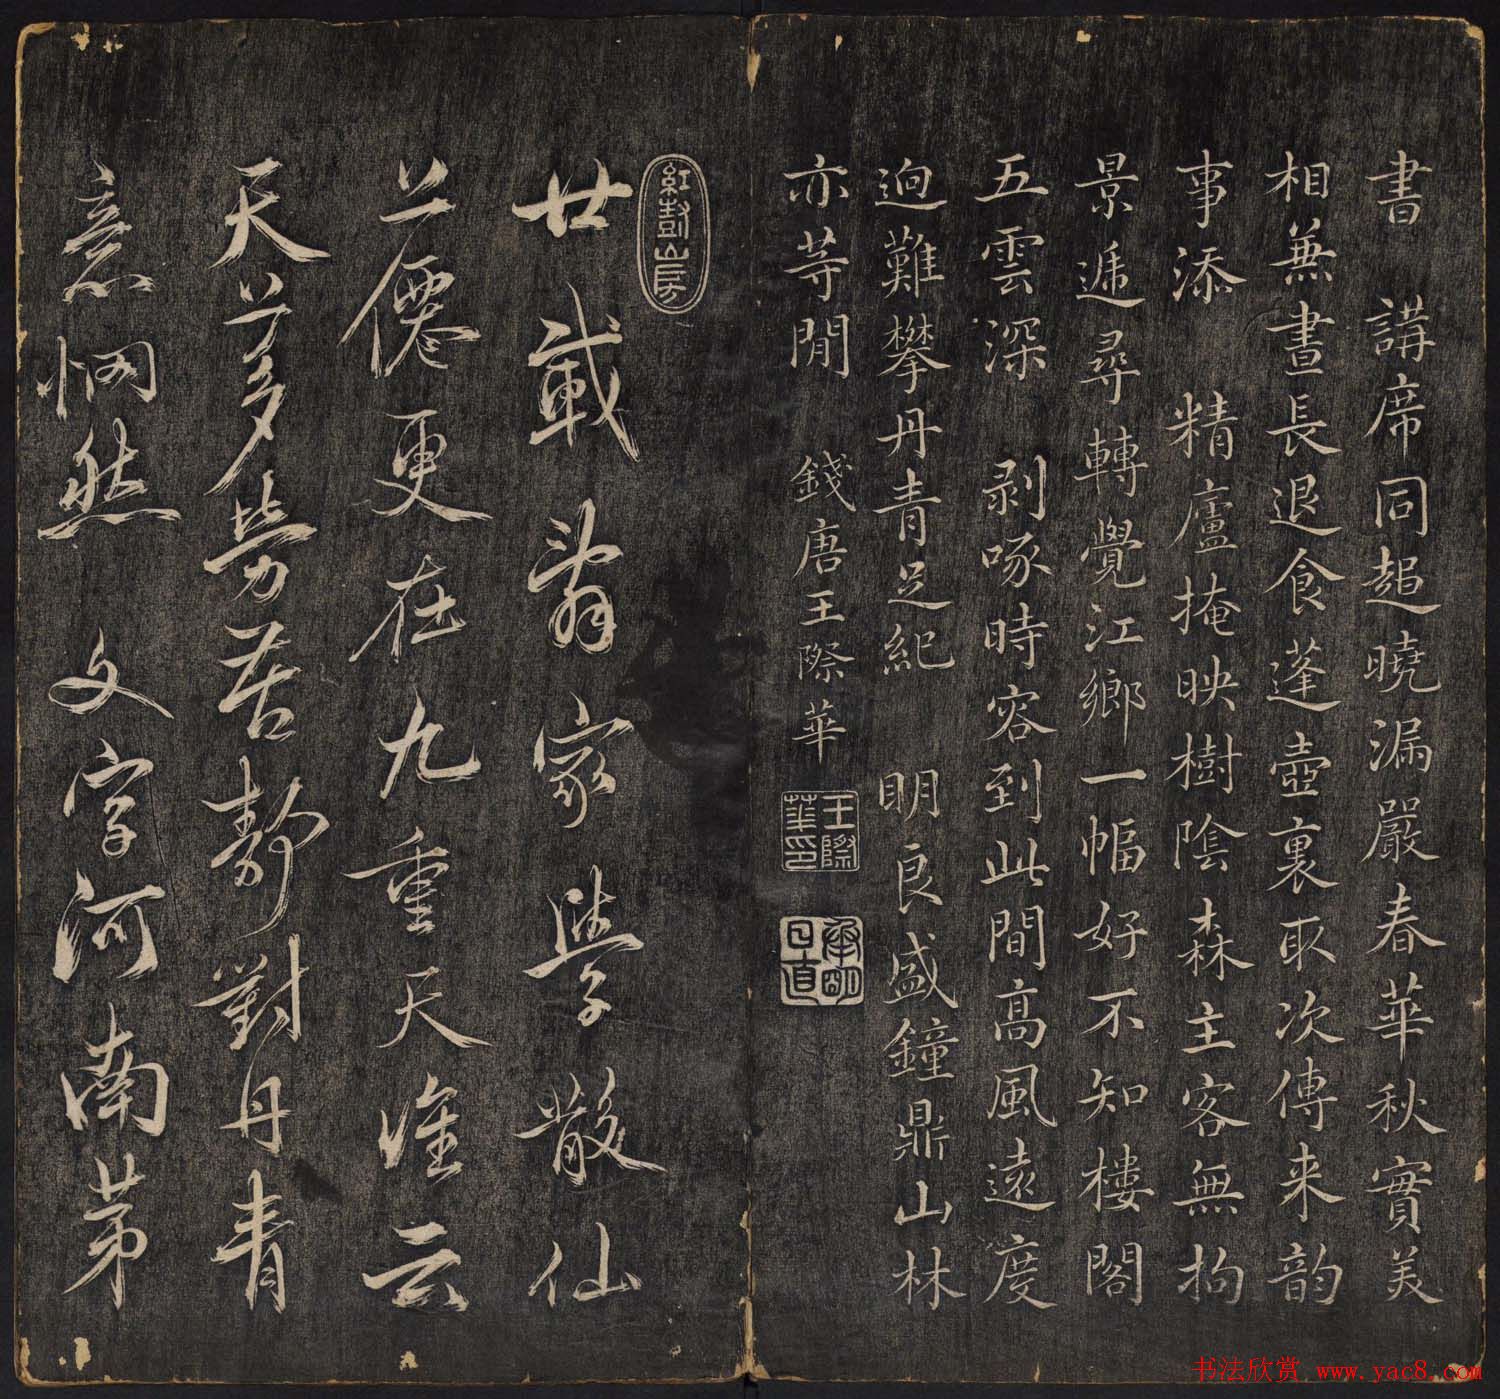 書 講席同趨曉漏嚴春華秋實美
相兼晝長退食蓬壺裏取次傳来韵
事添 精廬掩映樹陰森主客無拘
景遞尋轉覺江鄉一幅好不知樓閣
五雲深 剥啄時容到此間高風遠度
迥難攀丹青足紀 明良盛鐘鼎山林
亦等閒 錢唐王際華
王際華印
紅封山房
廿載翁家學散仙
上僊更在九重天准云
天上多勞苦靜對丹青
意惘然 文字河南第
书法欣赏 www.yac8.com